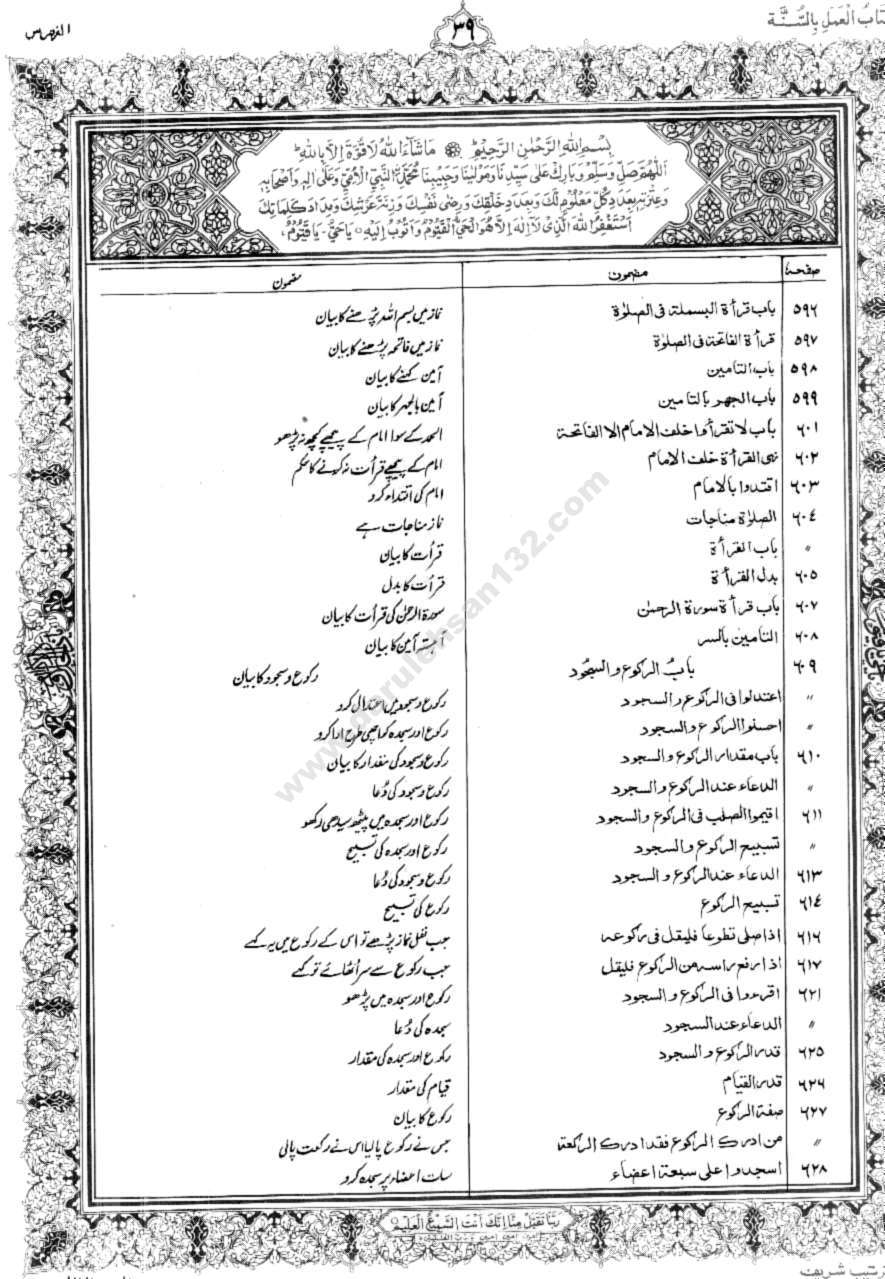 کتابُ الْعَمَلِ بِالسُّنَّة
۳۹
الفہرس
بِسْمِ اللهِ الرَّحْمٰنِ الرَّحِيْمِ مَا شَآءَ اللهُ لَا قُوَّةَ اِلَّا بِاللهِ
اَللّٰهُمَّ صَلِّ وَسَلِّمْ وَبَارِكْ عَلٰى سَيِّدِنَا وَمَوْلٰينَا وَحَبِيْبِنَا مُحَمَّدِ النَّبِيِّ الْاُمِّيِّ وَعَلٰى اٰلِهٖ وَاَصْحَابِهٖ
وَعِتْرَتِهٖ بِعَدَدِ كُلِّ مَعْلُوْمٍ لَّكَ وَبِعَدَدِ خَلْقِكَ وَرِضٰى نَفْسِكَ وَزِنَةِ عَرْشِكَ وَمِدَادِ كَلِمَاتِكَ
اَسْتَغْفِرُ اللهَ الَّذِىْ لَا اِلٰهَ اِلَّا هُوَ الْحَىُّ الْقَيُّوْمُ وَاَتُوْبُ اِلَيْهِ يَا حَىُّ يَا قَيُّوْمُ
صفحہ مضمون مضمون
۵۹۶ باب قرأة البسملة فی الصلوٰة نماز میں بسم اللہ پڑھنے کا بیان
۵۹۷ قرأة الفاتحة فی الصلوٰة نماز میں فاتحہ پڑھنے کا بیان
۵۹۸ باب التامین آمین کہنے کا بیان
۵۹۹ باب الجھر بالتامین آمین بالجہر کا بیان
۶۰۱ باب لا تقرأوا خلف الامام الا الفاتحة الحمد کے سوا امام کے پیچھے کچھ نہ پڑھو
۶۰۲ نہی القرأة خلف الامام امام کے پیچھے قرأت نہ کرنے کا حکم
۶۰۳ اقتدوا بالامام امام کی اقتداء کرو
۶۰٤ الصلوٰة مناجات نماز مناجات ہے
〃 باب القرأة قرأت کا بیان
۶۰۵ بدل القرأة قرأت کا بدل
۶۰۷ باب قرأة سورة الرحمٰن سورۃ الرحمٰن کی قرأت کا بیان
۶۰۸ التامین بالسر آہستہ آمین کا بیان
۶۰۹ بابُ الرکوع و السجود رکوع و سجود کا بیان
〃 اعتدلوا فی الرکوع و السجود رکوع و سجود میں اعتدال کرو
〃 احسنوا الرکوع و السجود رکوع اور سجدہ کو اچھی طرح ادا کرو
۶۱۰ باب مقدار الرکوع و السجود رکوع و سجود کی مقدار کا بیان
〃 الدعاء عند الرکوع و السجود رکوع و سجود کی دُعا
۶۱۱ اقیموا الصلب فی الرکوع و السجود رکوع اور سجدہ میں پیٹھ سیدھی رکھو
〃 تسبیح الرکوع و السجود رکوع اور سجدہ کی تسبیح
۶۱۳ الدعاء عند الرکوع و السجود رکوع و سجود کی دُعا
۶۱٤ تسبیح الرکوع رکوع کی تسبیح
۶۱۶ اذا صلی تطوعا فلیقل فی رکوعہ جب نفل نماز پڑھے تو اس کے رکوع میں یہ کہے
۶۱۷ اذا رفع راسہ من الرکوع فلیقل جب رکوع سے سر اُٹھائے تو کہے
۶۲۱ اقرءوا فی الرکوع و السجود رکوع اور سجدہ میں پڑھو
〃 الدعاء عند السجود سجدہ کی دُعا
۶۲۵ قدر الرکوع و السجود رکوع اور سجدہ کی مقدار
۶۲۶ قدر القیام قیام کی مقدار
۶۲۷ صفة الرکوع رکوع کا بیان
〃 من ادرک الرکوع فقد ادرک الرکعة جس نے رکوع پا لیا اس نے رکعت پالی
۶۲۸ اسجدوا علی سبعة اعضاء سات اعضاء پر سجدہ کرو
رَبَّنَا تَقَبَّلْ مِنَّا اِنَّكَ اَنْتَ السَّمِيْعُ الْعَلِيْمُ
www.darulehsan132.com